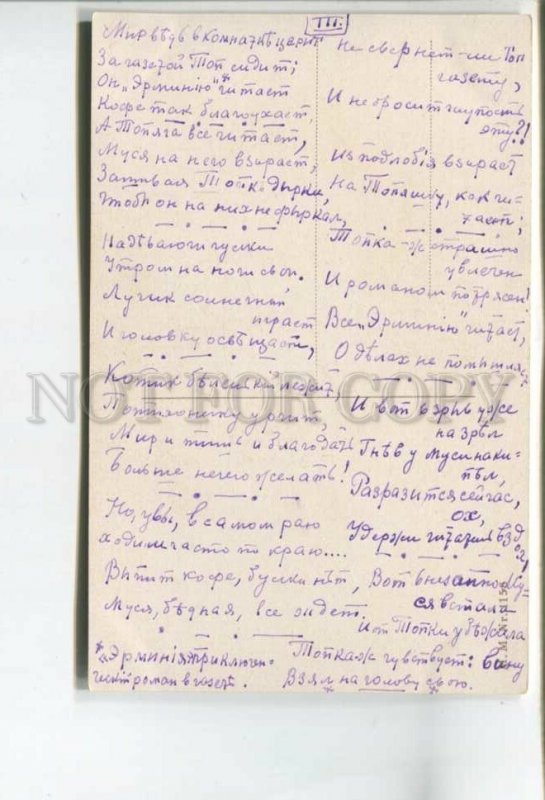 III.
Миръ вѣдь въ комнаткѣ царитъ
За газетой Топ сидит;
Он „Эрминію"* читает
Кофе так благоухает,
А Топяга всё читает,
Муся на него взирает,
Топк дырки,
Чтоб он на них не фыркал,
Надѣваючи чулки
Утром на ноги свои.
Лучик солнечный
играет
И головку освѣщает,
Котик бѣленькій лежит,
Потихоньку урчит,
Мир и тишь и благодать
Больше нечего желать!
Но, увы, в самом раю
ходим часто по краю....
Выпит кофе, булки нѣт,
Муся, бѣдная, все ждет.
*„Эрминія приключен-
ческ роман в газетѣ.
Не свернет-ли Топ
газету,
И не бросит глупость
эту?!
Из подлобія взирает
На Топяшку, как чи-
тает;
Топка-ж страшно
увлечен
И романом потрясен!
Все „Эрминію" читает,
О дѣлах не помышляет
И вот взрыв уже
назрѣл
Гнѣв у Муси наки-
пѣл,
Разразится сейчас,
ох,
Удержи читатель вздох,
Вот внезапно Му-
ся встала
И от Топки убѣжала
Топка-ж чувствует: вину
Взял на голову свою.
NOT FOR COPY